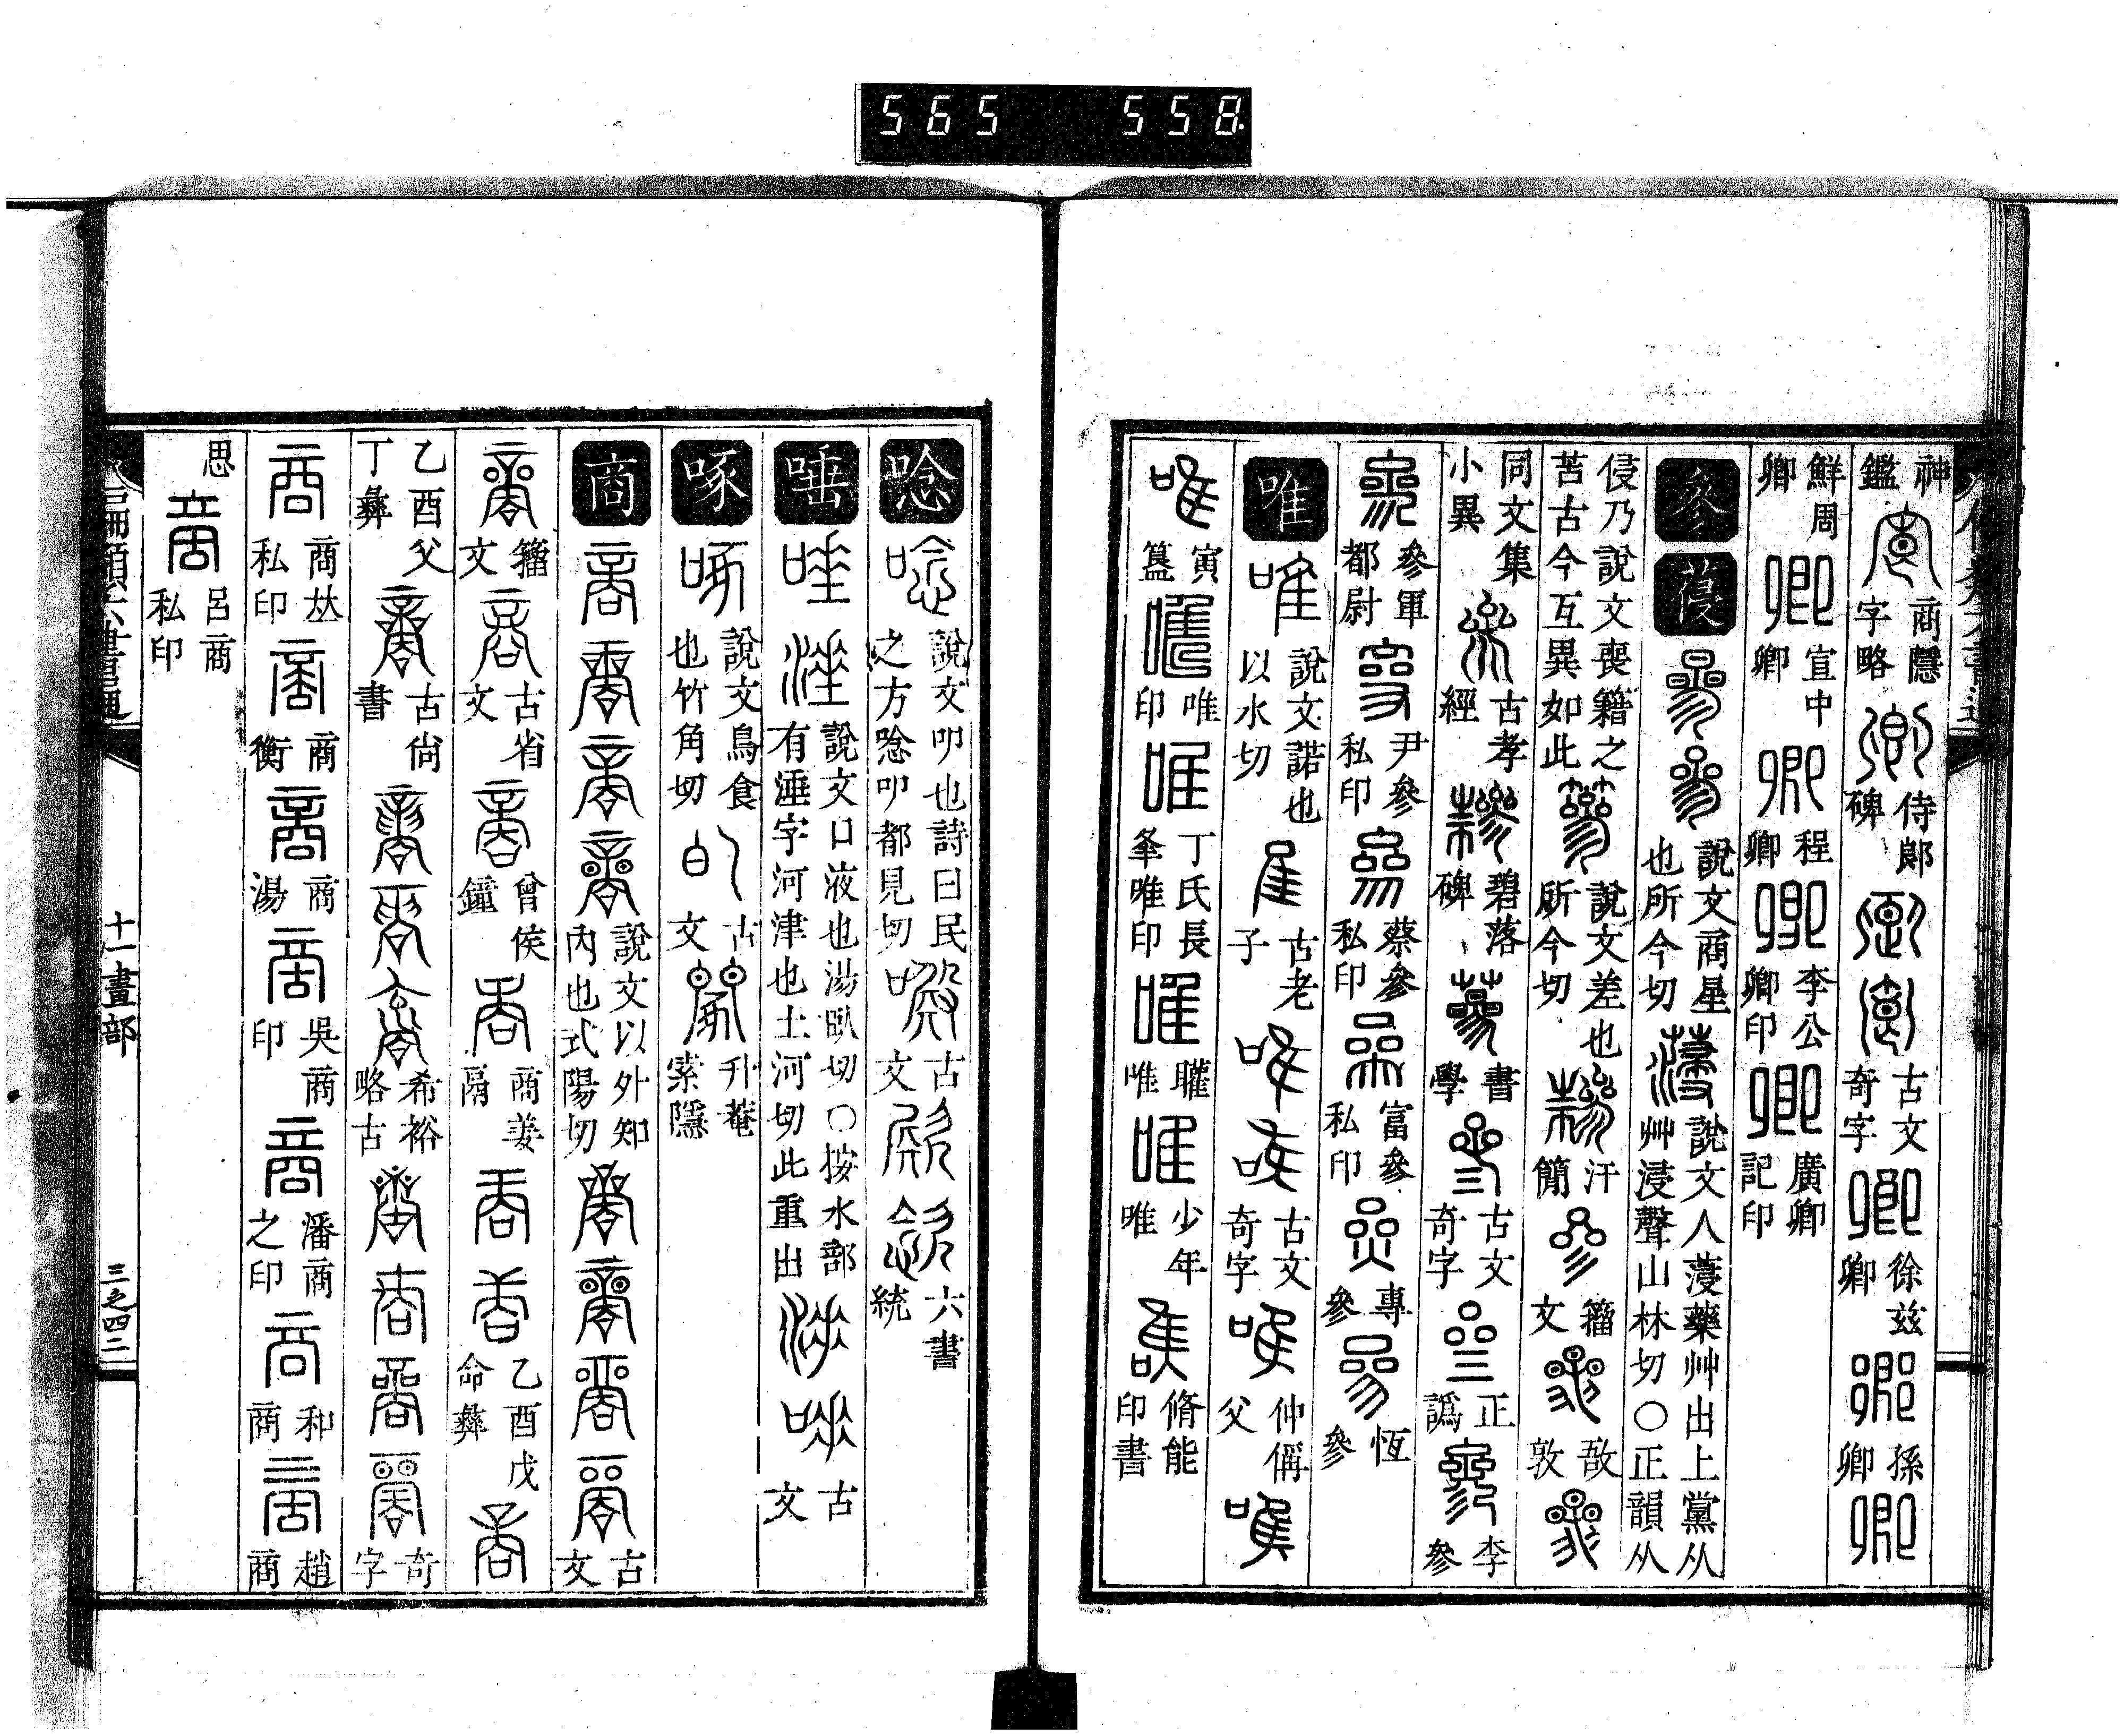 565 558
神鑑 商隱字略 侍郎碑 古文奇字 徐兹卿 孫卿
鮮周卿 宣中卿 程卿 李公卿印 廣卿記印
參 葠 說文商星也所今切 說文人薓藥艸出上黨从艸浸聲山林切〇正韻从
侵乃說文喪籍之苦古今互異如此 說文差也所今切 汗簡 籀文 敔敦
同文集小異 古孝經 碧落碑 書學 古文奇字 正譌 李參
參軍都尉 尹參私印 蔡參私印 富參私印 專參 恆參
唯 說文諾也以水切 古老子 古文奇字 仲偁父
寅簋 唯印 丁氏長夆唯印 瓘唯 少年唯 脩能印書
唸 說文呻也詩曰民之方唸呻都見切 古文 六書統
唾 說文口液也湯臥切〇按水部有涶字河津也土河切此重出 古文
啄 說文鳥食也竹角切 古文 升菴索隱
商 說文以外知內也式陽切 古文
籀文 古省文 曾侯鐘 商姜鬲 乙酉戊命彝
乙酉父丁彝 古尚書 希裕略古 奇字
商夶私印 商衡 商湯 吳商印 潘商之印 和商 趙商
思 呂商私印
十一畫部
三之四二